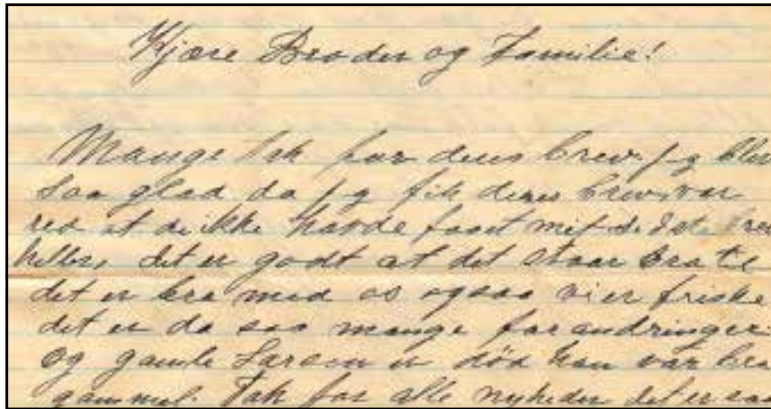 Kjære Broder og Familie!
Mange Tak for deres brev. Jeg blev
saa glad da jeg fik deres brev, var
red at de ikke havde faaet mit sidste brev
heller, det er godt at det staar bra til
det er bra med os ogsaa vi er friske
det er da saa mange forandringer
og gamle Larson er død han var bra
gammel. Tak for alle nyheder det er saa